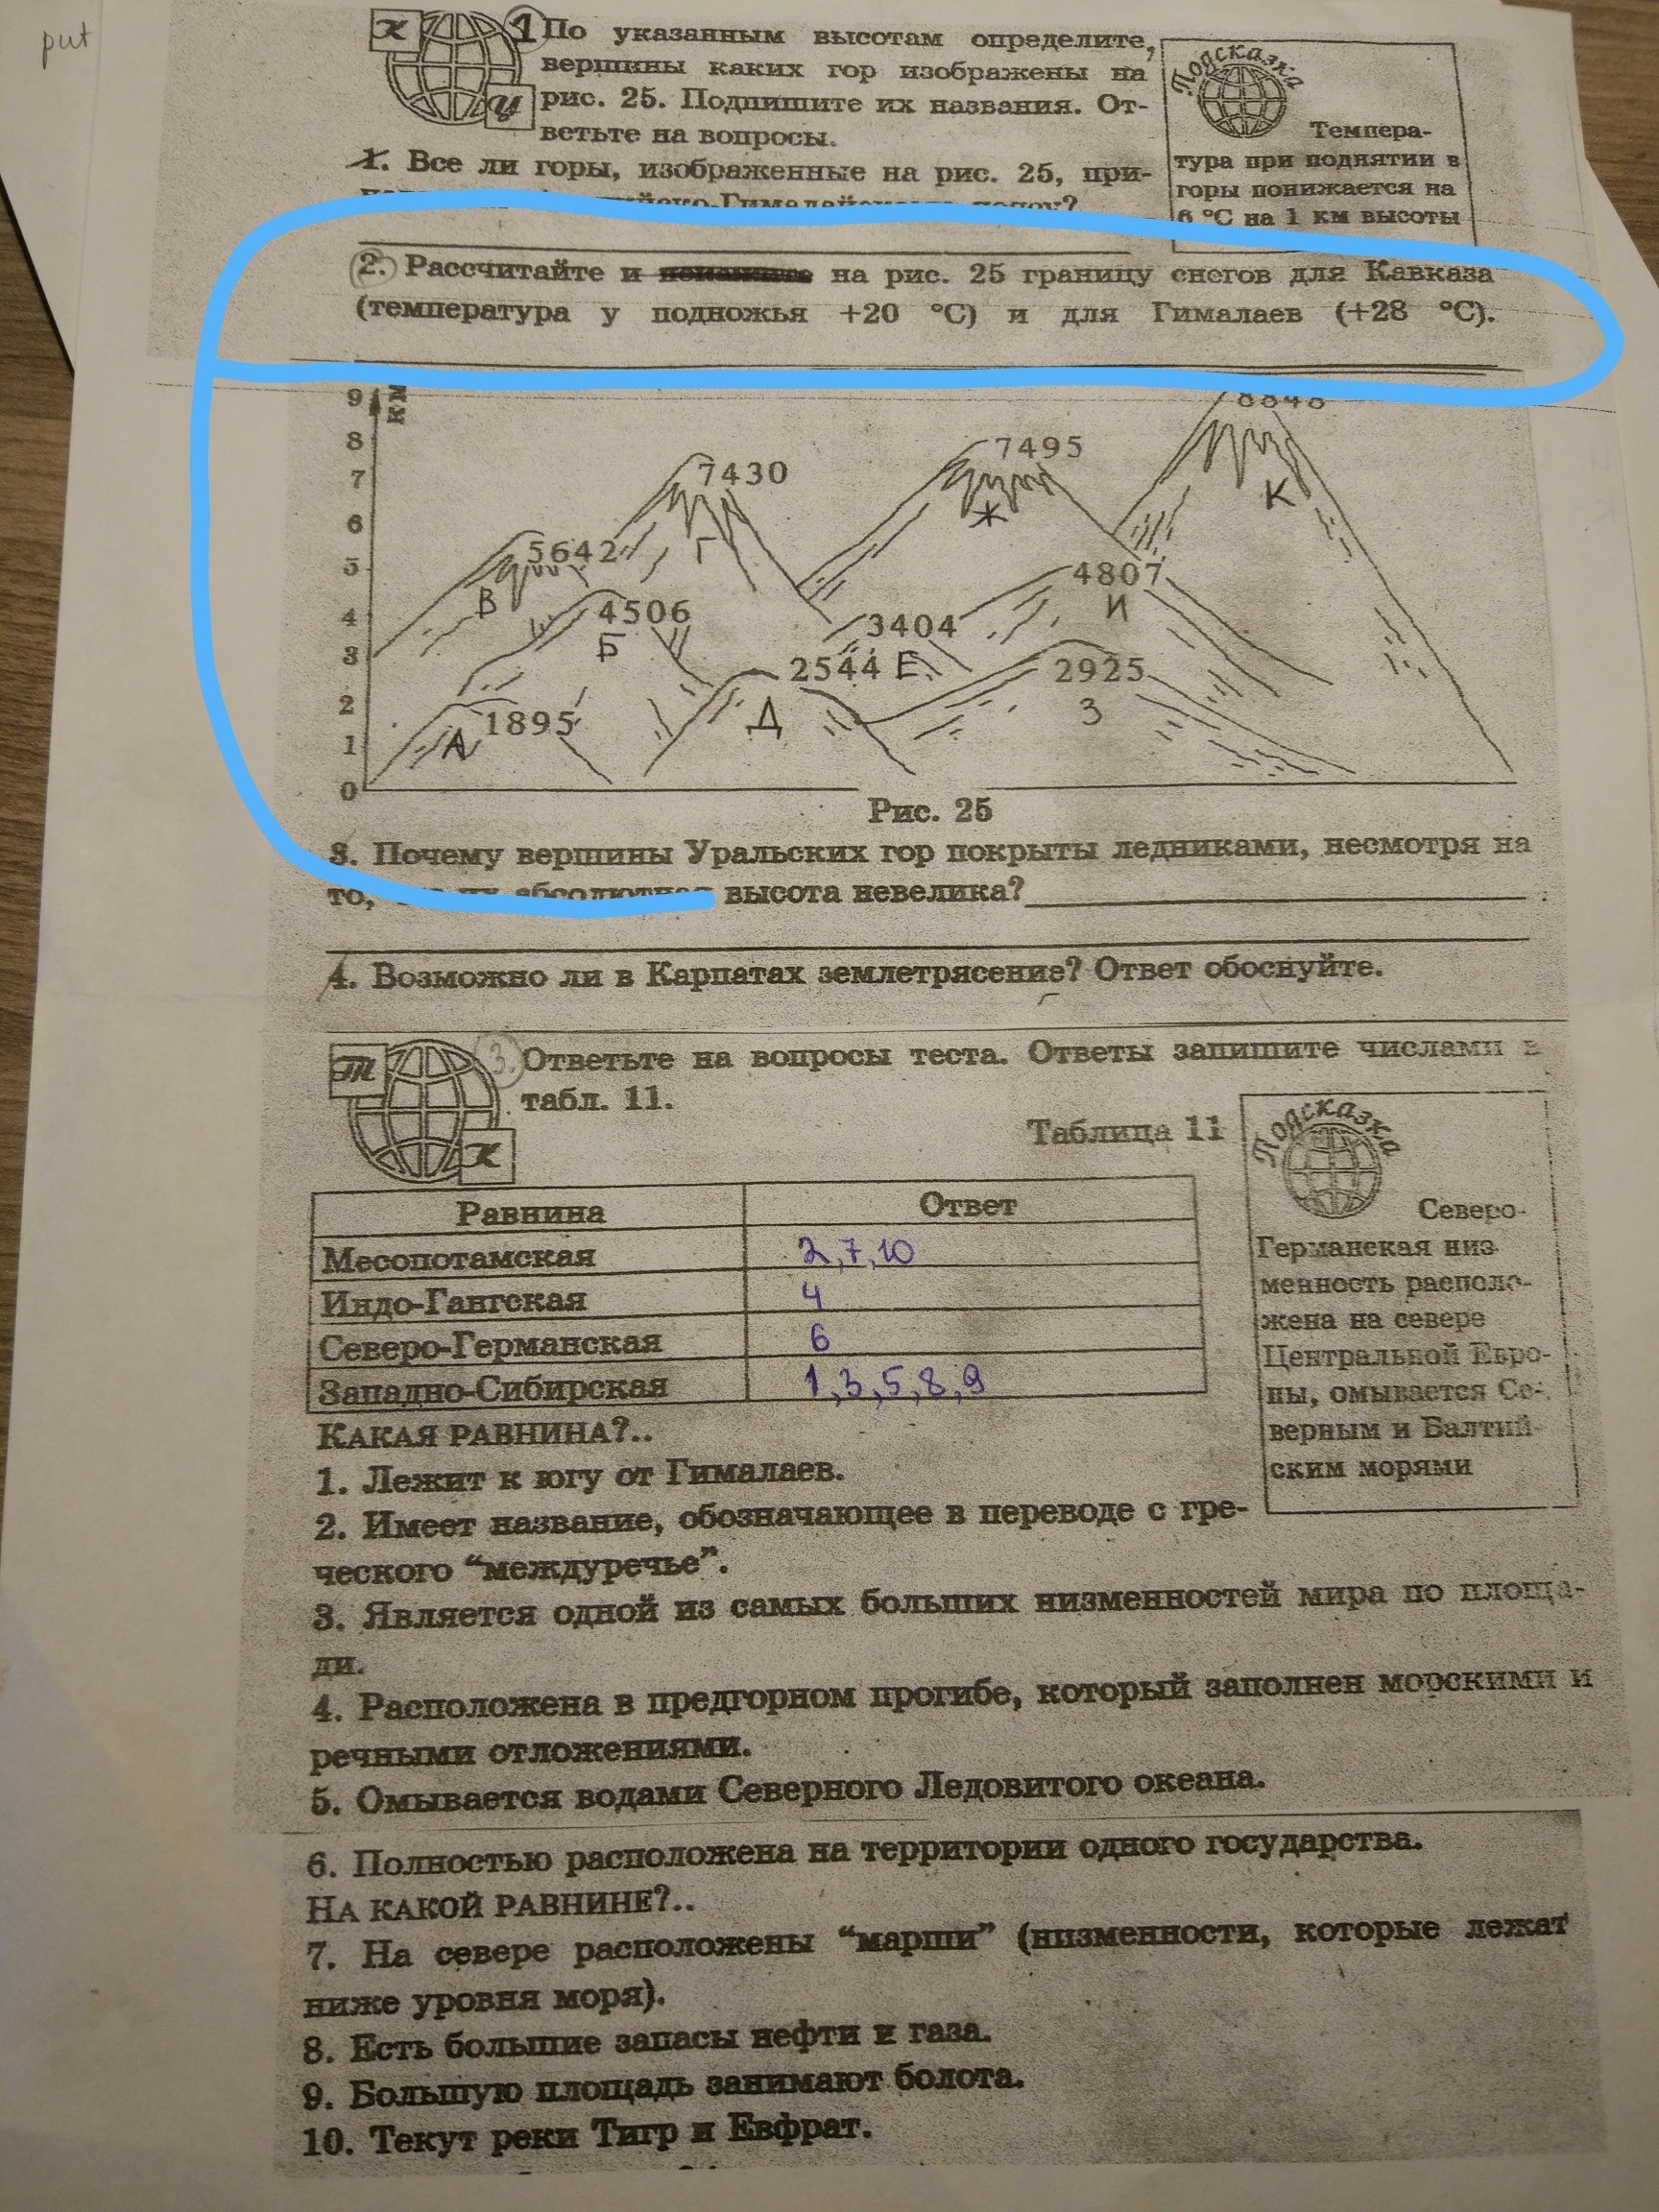 put
К
У
1 По указанным высотам определите,
вершины каких гор изображены на
рис. 25. Подпишите их названия. От-
ветьте на вопросы.
1. Все ли горы, изображенные на рис. 25, при-
йско-Гималайскому поясу?
Подсказка
Темпера-
тура при поднятии в
горы понижается на
6 °С на 1 км высоты
2. Рассчитайте и на рис. 25 границу снегов для Кавказа
(температура у подножья +20 °С) и для Гималаев (+28 °С).
км
9
8
7
6
5
4
3
2
1
0
8848
К
7495
Ж
7430
Г
5642
В
4506
Б
4807
И
3404
Е
2544
Д
2925
З
1895
А
Рис. 25
3. Почему вершины Уральских гор покрыты ледниками, несмотря на
то, их абсолютная высота невелика?
4. Возможно ли в Карпатах землетрясение? Ответ обоснуйте.
Т
К
3. Ответьте на вопросы теста. Ответы запишите числами в
табл. 11.
Таблица 11
Равнина Ответ
Месопотамская 2,7,10
Индо-Гангская 4
Северо-Германская 6
Западно-Сибирская 1,3,5,8,9
Подсказка
Северо-
Германская низ-
менность располо-
жена на севере
Центральной Евро-
пы, омывается Се-
верным и Балтий-
ским морями
КАКАЯ РАВНИНА?..
1. Лежит к югу от Гималаев.
2. Имеет название, обозначающее в переводе с гре-
ческого “междуречье”.
3. Является одной из самых больших низменностей мира по площа-
ди.
4. Расположена в предгорном прогибе, который заполнен морскими и
речными отложениями.
5. Омывается водами Северного Ледовитого океана.
6. Полностью расположена на территории одного государства.
НА КАКОЙ РАВНИНЕ?..
7. На севере расположены “марши” (низменности, которые лежат
ниже уровня моря).
8. Есть большие запасы нефти и газа.
9. Большую площадь занимают болота.
10. Текут реки Тигр и Евфрат.